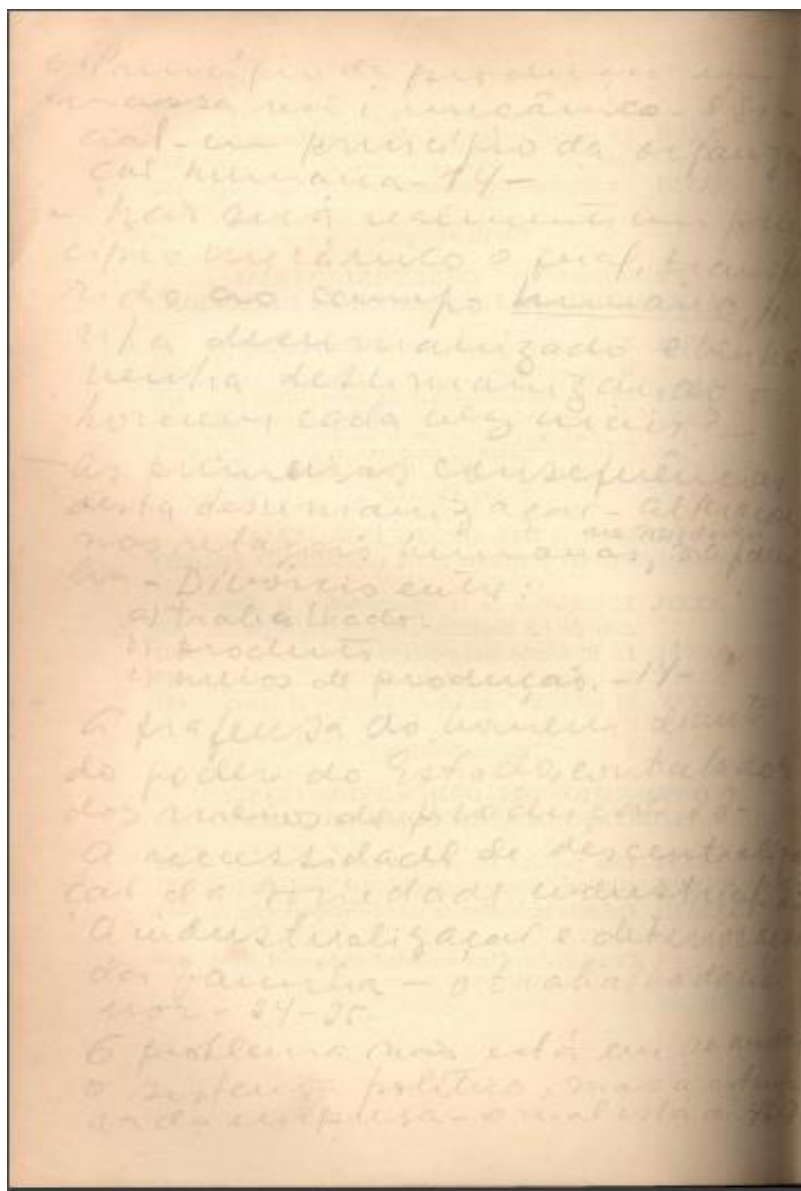 O Princípio de produção em
massa não é mecânico. É so-
cial - um princípio da organiza
ção humana - 14 -
- Não será realmente um prin
cípio mecânico o qual, transfe
rido ao campo humano,
desumanizado e
venha desumanizando o
homem, cada vez mais? -
As consequências
desta desumanização - alteração
nas relações humanas,
- Divórcio entre:
a) trabalhador
b) produto
c) meios de produção. - 14 -
A fraqueza do homem diante
do poder do Estado, controlador
dos meios de produção
A necessidade de descentraliza
ção da sociedade industrial
A industrialização e
da família - o trabalho do me
nor - 24-25.
O problema não está em
o sistema político, mas a
da empresa - o mal está